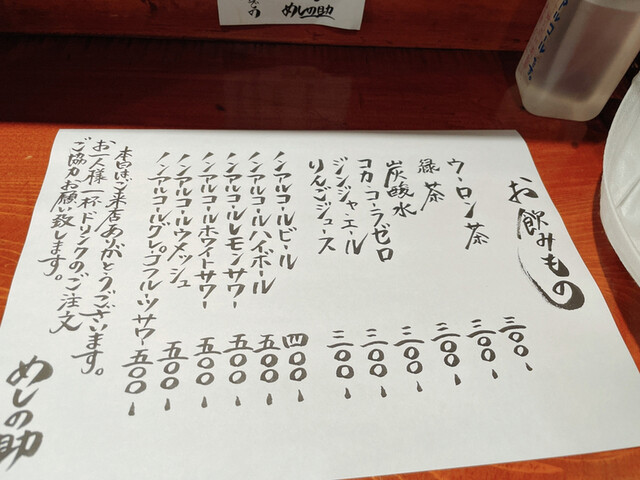 お飲みもの
ウーロン茶 三〇〇、
緑茶 三〇〇、
炭酸水 三〇〇、
コカ・コーラゼロ 三〇〇、
ジンジャエール 三〇〇、
りんごジュース 三〇〇、
ノンアルコールビール 四〇〇、
ノンアルコールハイボール 五〇〇、
ノンアルコールレモンサワー 五〇〇、
ノンアルコールホワイトサワー 五〇〇、
ノンアルコールウメッシュ 五〇〇、
ノンアルコールグレープフルーツサワー 五〇〇、
本日はご来店ありがとうございます。
お一人様一杯ドリンクのご注文
ご協力お願い致します。
めしの助
めしの助